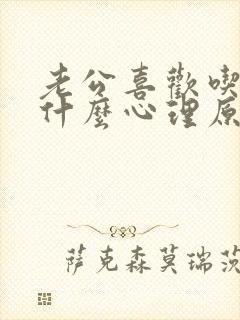 老公喜歡喫
什麼心理原
萨克森莫瑞茨